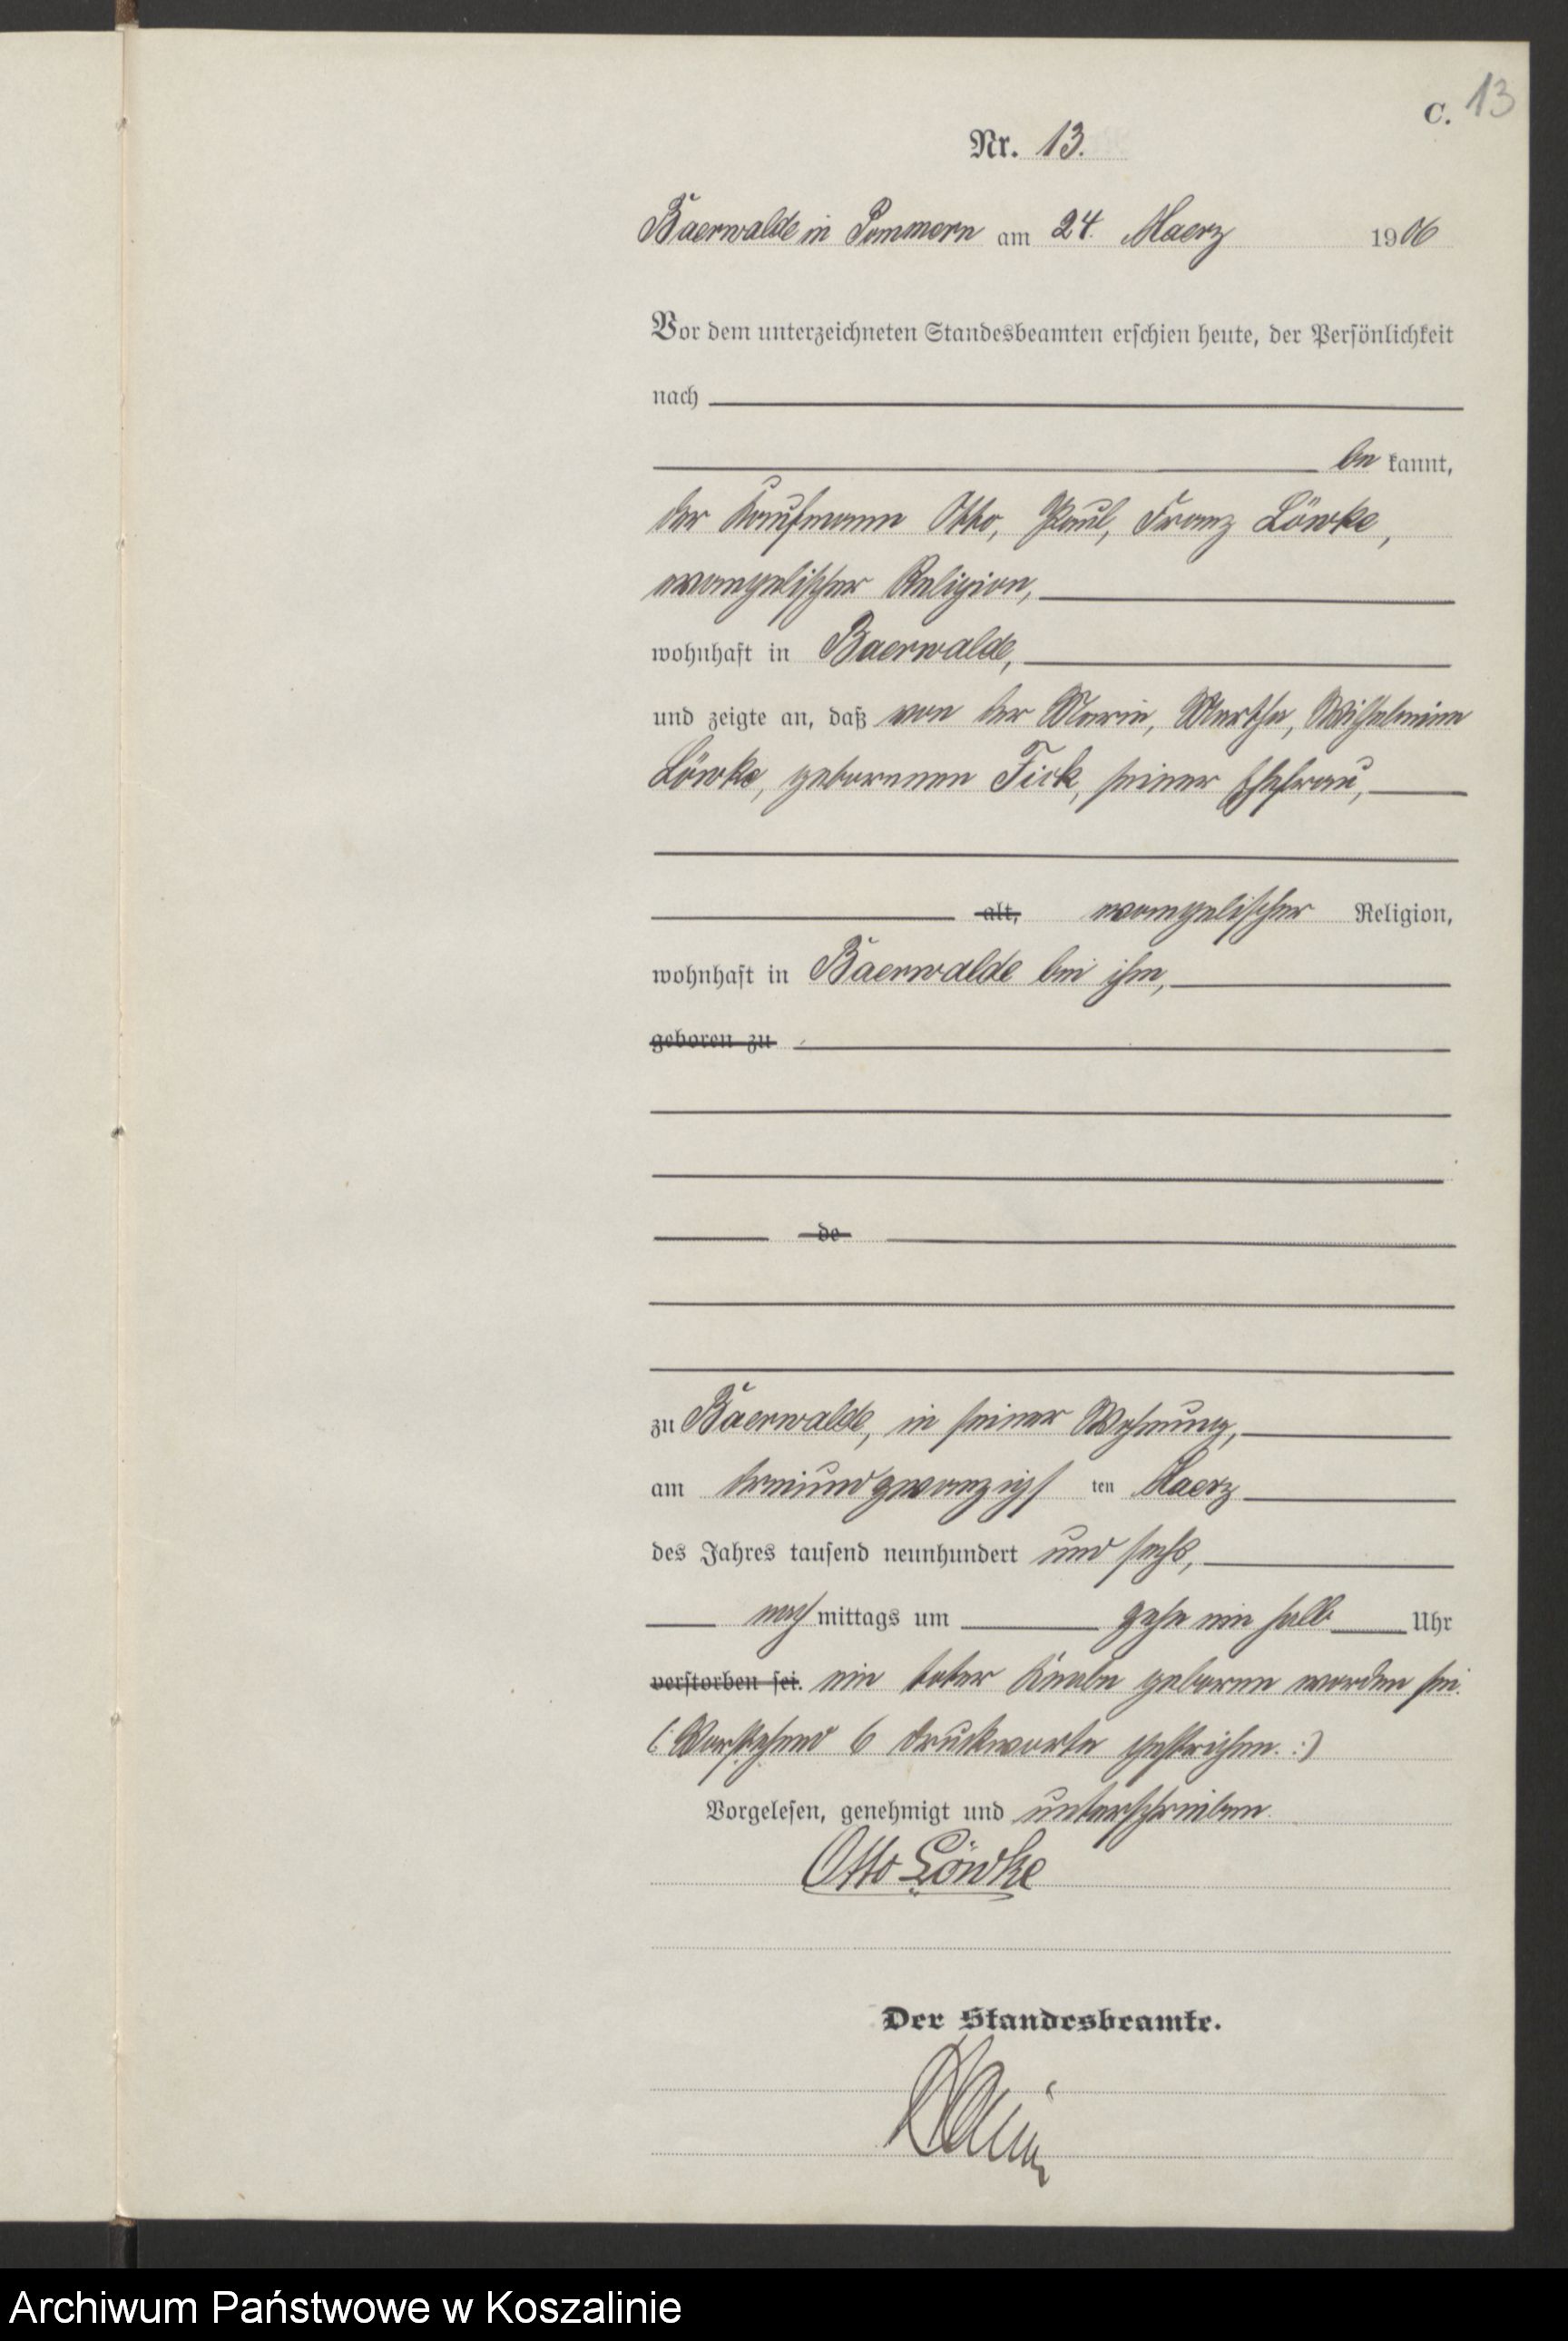 C. 13
Nr. 13.
Baerwalde in Pommern am 24. Maerz 1906
Vor dem unterzeichneten Standesbeamten erschien heute, der Persönlichkeit
nach
be kannt,
der Kaufmann Otto, Paul, Franz Löwke,
evangelischer Religion,
wohnhaft in Baerwalde,
und zeigte an, daß von der Marie, Martha, Wilhelmine
Löwke, geborenen Fick, seiner Ehefrau,
alt, evangelischer Religion,
wohnhaft in Baerwalde bei ihm,
geboren zu
de
zu Baerwalde, in seiner Wohnung,
am dreiundzwanzigs ten Maerz
des Jahres tausend neunhundert und sechs,
nach mittags um zehn ein halb Uhr
verstorben sei. ein toter Knabe geboren worden sei.
(: Vorstehend 6 Druckworte gestrichen. :)
Vorgelesen, genehmigt und unterschrieben.
Otto Löwke
Der Standesbeamte.
Archiwum Państwowe w Koszalinie